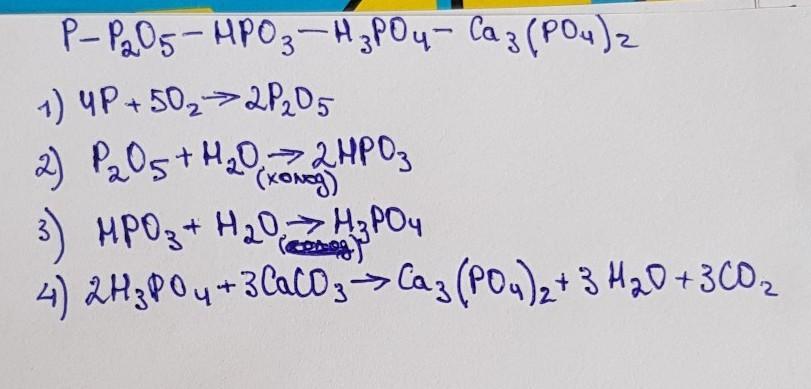 P-P₂O₅-HPO₃-H₃PO₄-Ca₃(PO₄)₂
1) 4P+5O₂→2P₂O₅
2) P₂O₅+H₂O→2HPO₃
(холод)
3) HPO₃+H₂O→H₃PO₄
4) 2H₃PO₄+3CaCO₃→Ca₃(PO₄)₂+3H₂O+3CO₂